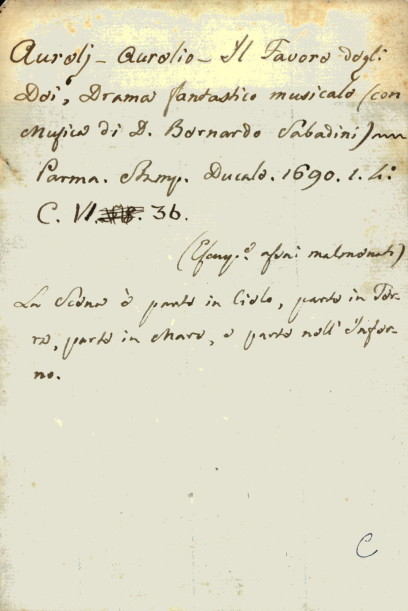 Aurelj - Aurelio - Il Favore degli
Dei, Drama fantastico musicale (con
Musica di D. Bernardo Sabadini)
Parma. Stamp. Ducale. 1690. 1. 4.º
C. VI. 36.
(Esemp.º assai malmenati)
La Scena è parte in Cielo, parte in Ter-
ra, parte in Mare, e parte nell'Infer-
no.
C